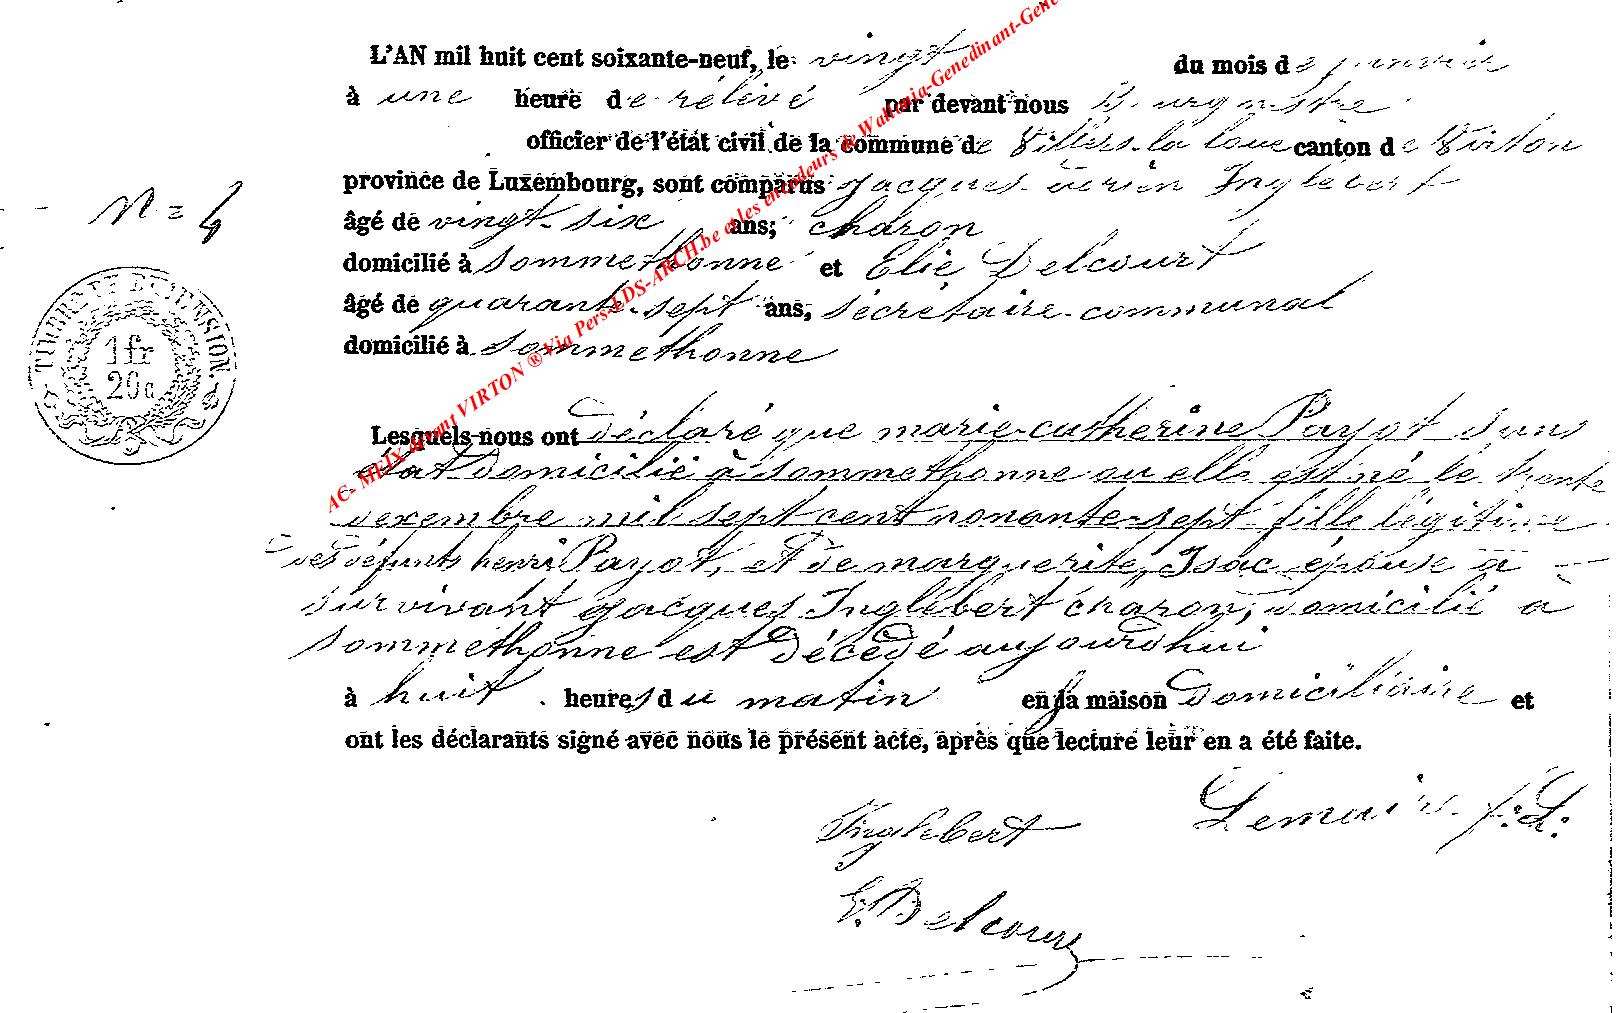 L'AN mil huit cent soixante-neuf, le vingt du mois de janvier
à une heure de rélévé par devant nous Burgmstre
officier de l'état civil de la commune de Villers-la loue canton de Virton
province de Luxembourg, sont comparus Jacques Inglebert
N = 4
âgé de vingt-six ans, charon
domicilié à Sommethonne et Elie Delcourt
âgé de quarante-sept ans, sécrétaire communal
domicilié à Sommethonne
TIMBRE DE DIMENSION.
1 fr
20 c
Lesquels nous ont déclaré que marie-catherine Payot sans
état domicilié à Sommethonne ou elle est né le trente
dexembre mil sept cent nonante-sept fille légitime
des défunts henri Payot, et de marguerite, Isac épouse à
survivant Jacques Inglebert charon, domicilié à
Sommethonne est décédé aujourdhui
à huit heures du matin en la maison domiciliaire et
ont les déclarants signé avec nous le présent acte, après que lecture leur en a été faite.
Inglebert Lemaire f:L:
E. Delcourt
AC- MEIX devant VIRTON ® Via Pers-LDS-ARCH.be et les encodeurs de Wallonia-Genedinant-Gene